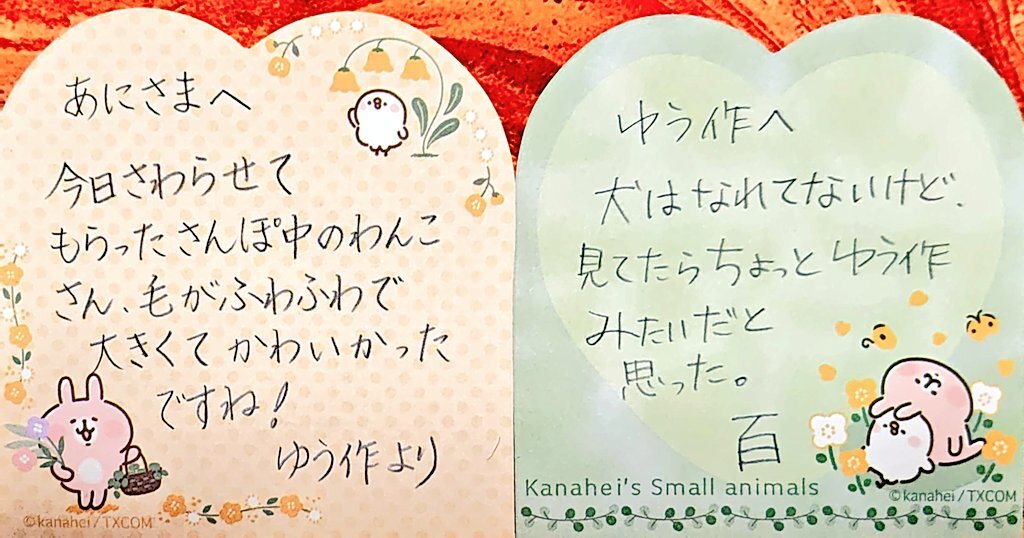 あにさまへ
今日さわらせて
もらったさんぽ中のわんこ
さん、毛がふわふわで
大きくてかわいかった
ですね!
ゆう作より
©kanahei / TXCOM
ゆう作へ
犬はなれてないけど、
見てたらちょっとゆう作
みたいだと
思った。
百
Kanahei's Small animals
©kanahei / TXCOM